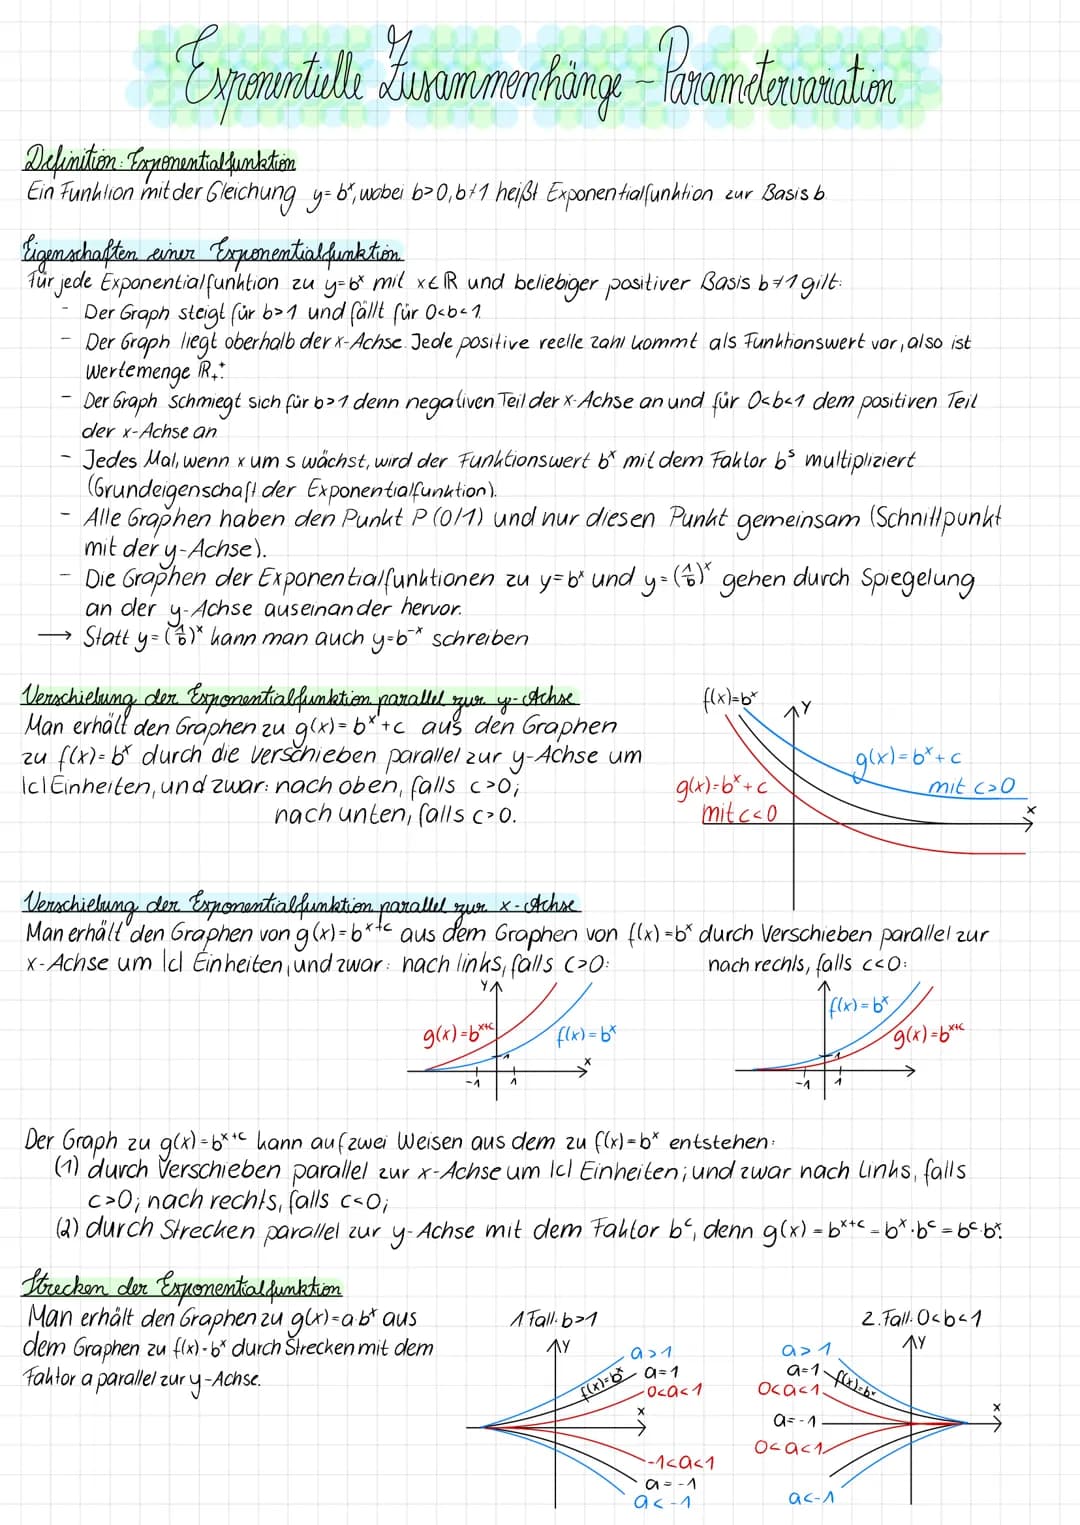 Exponentielle Zusammenhänge - Parametervariation
Definition: Exponentialfunktion
Ein Funktion mit der Gleichung y=bˣ, wobei b>0, b≠1 heißt Exponentialfunktion zur Basis b.
Eigenschaften einer Exponentialfunktion
Für jede Exponentialfunktion zu y=bˣ mit x∈ℝ und beliebiger positiver Basis b≠1 gilt:
- Der Graph steigt für b>1 und fällt für 0<b<1.
- Der Graph liegt oberhalb der x-Achse. Jede positive reelle Zahl kommt als Funktionswert vor, also ist
Wertemenge ℝ₊⁺.
- Der Graph schmiegt sich für b>1 denn negativen Teil der x-Achse an und für 0<b<1 dem positiven Teil
der x-Achse an
- Jedes Mal, wenn x um s wächst, wird der Funktionswert bˣ mit dem Faktor bˢ multipliziert
(Grundeigenschaft der Exponentialfunktion).
- Alle Graphen haben den Punkt P (0/1) und nur diesen Punkt gemeinsam (Schnittpunkt
mit der y-Achse).
- Die Graphen der Exponentialfunktionen zu y=bˣ und y=(1/b)ˣ gehen durch Spiegelung
an der y-Achse auseinander hervor.
→ Statt y=(1/b)ˣ kann man auch y=b⁻ˣ schreiben
Verschielung der Exponentialfunktion parallel zur y-Achse
Man erhält den Graphen zu g(x)=bˣ+c aus den Graphen
zu f(x)=bˣ durch die Verschieben parallel zur y-Achse um
|c| Einheiten, und zwar: nach oben, falls c>0;
nach unten, falls c>0.
f(x)=bˣ
y
g(x)=bˣ+c
mit c>0
g(x)=bˣ+c
mit c<0
x
Verschielung der Exponentialfunktion parallel zur x-Achse
Man erhält den Graphen von g(x)=bˣ⁺ᶜ aus dem Graphen von f(x)=bˣ durch Verschieben parallel zur
x-Achse um |c| Einheiten, und zwar: nach links, falls c>0: nach rechts, falls c<0:
y
g(x)=bˣ⁺ᶜ
f(x)=bˣ
x
1
-1 1
f(x)=bˣ
g(x)=bˣ⁺ᶜ
1
-1 1
Der Graph zu g(x)=bˣ⁺ᶜ kann auf zwei Weisen aus dem zu f(x)=bˣ entstehen:
(1) durch Verschieben parallel zur x-Achse um |c| Einheiten; und zwar nach links, falls
c>0; nach rechts, falls c<0;
(2) durch Strecken parallel zur y-Achse mit dem Faktor bᶜ, denn g(x)=bˣ⁺ᶜ=bˣ·bᶜ=bᶜ·bˣ.
Strecken der Exponentialfunktion
Man erhält den Graphen zu g(x)=a bˣ aus
dem Graphen zu f(x)=bˣ durch Strecken mit dem
Faktor a parallel zur y-Achse.
1 Fall: b>1
y
a>1
f(x)=bˣ
a=1
0<a<1
x
-1<a<1
a=-1
a<-1
2. Fall: 0<b<1
y
a>1
a=1
f(x)=bˣ
0<a<1
x
a=-1
0<a<1
a<-1